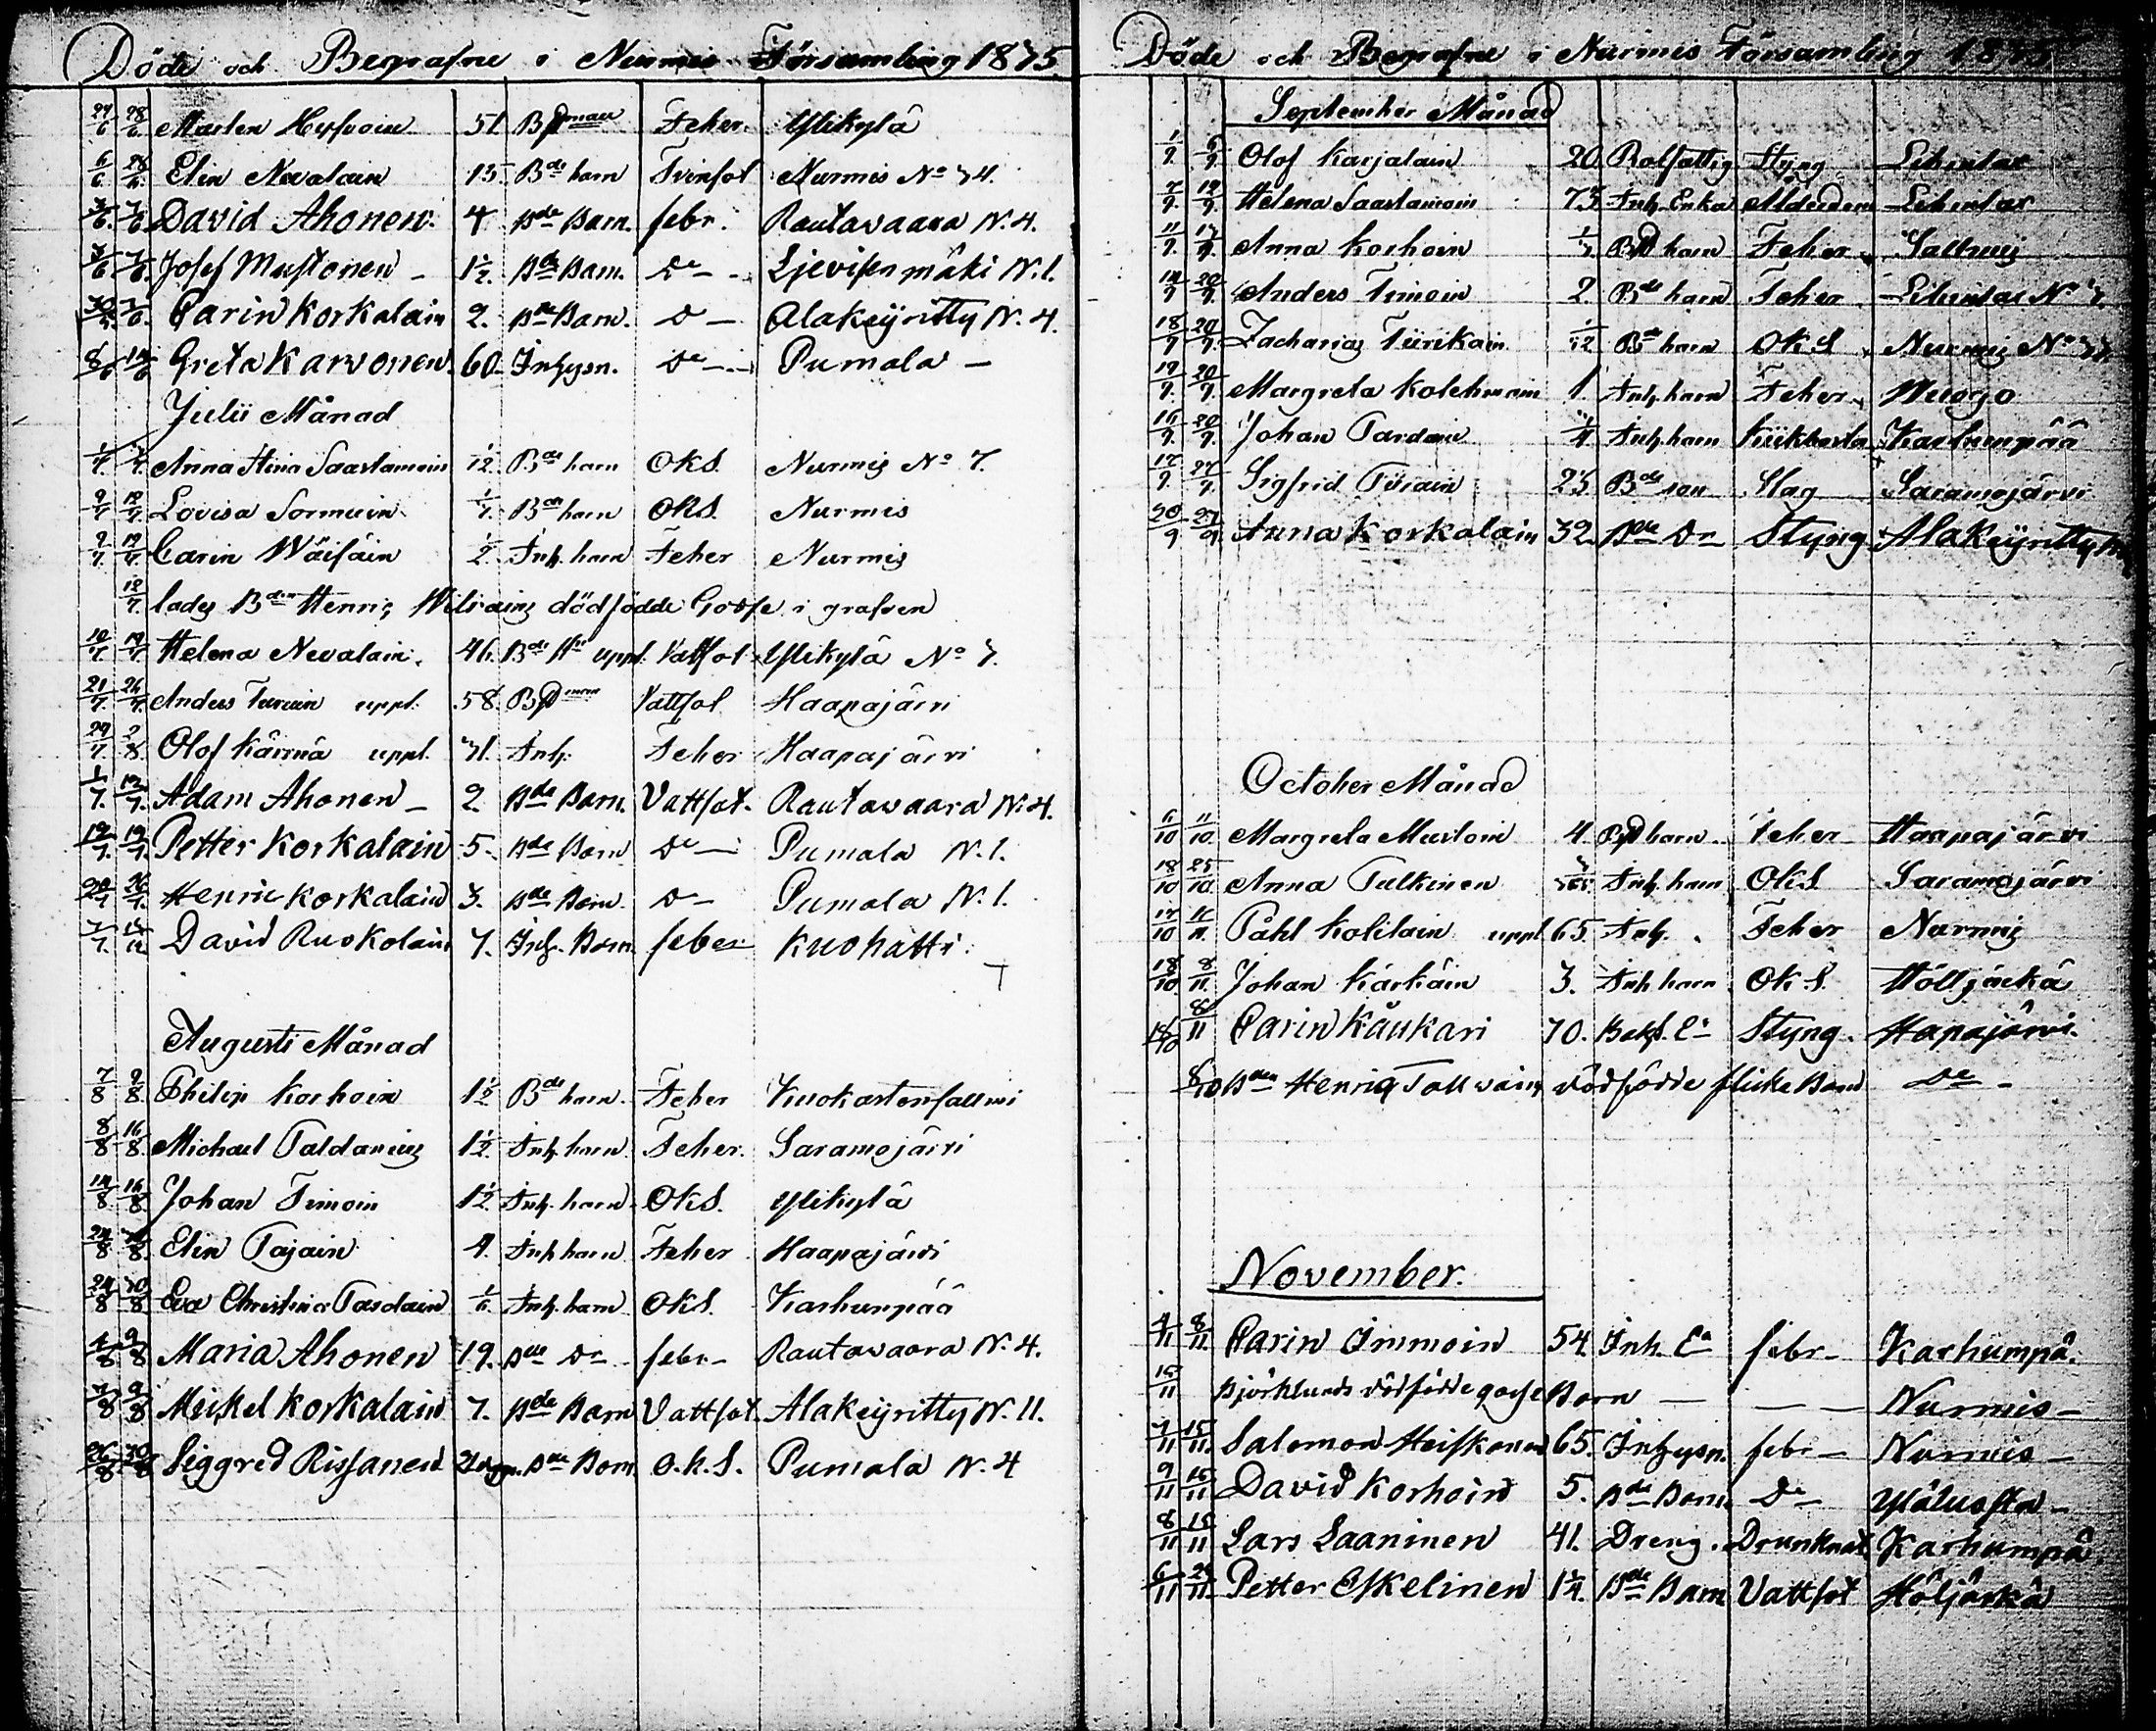 Döde och Begrafne i Nurmis Församling 1835
27/6 28/6 Marten Hyfvoin 51 Bdman Feber Ylikylä
6/6 28/6 Elin Nevalain 13 Bde barn Tvinsot Nurmis No 34.
3/6 7/6 David Ahonen. 4 Bde Barn. febr. Rautawaara N. 4.
3/6 7/6 Josef Mustonen 1 1/2. Bde Barn. Do Ljevisenmäki N. 1.
Carin Korkalain 2. Bde Barn. Do Alakeyritty N. 4.
8/6 14/6 Greta Karvonen. 60 Inhysn. Do Pumala
Julii Månad
Anna Stina Saastamoin 1/12. Bde barn OkS. Nurmis No 7.
9/7 19/7 Lovisa Sormuin Bde barn OkS. Nurmis
9/7 19/7 Carin Wäisäin 1/2. Inh. barn Feber Nurmis
12/7 lades Bden Henris dödfödde Gosse i grafven
10/7 19/7 Helena Nevalain. 46. Bde Hu uppl. Vattsot Ylikylä No 7.
21/7 26/7 Anders Turuin uppl. 58. Bdman Vattsot Haapajärvi
29/7 2/8 Olof Kärnä uppl. 31. Inh. Feber Haapajärvi
1/7 12/7 Adam Ahonen 2 Bde Barn. Vattsot. Rautavaara N. 4.
12/7 19/7 Petter Korkalain 5. Bde Barn Do Pumala N. 1.
20/7 26/7 Henric Korkalain 3. Bde Barn. Do Pumala N. 1.
David Ruokolain 7. Inh. Barn feber Kuohatti.
Augusti Månad
7/8 9/8 Philip Korhoin 1 1/2 Bde barn. Feber
8/8 16/8 Michael Taldanius 1 1/2. Inh. barn. Feber. Saramojärvi
14/8 16/8 Johan Timoin 1 1/2. Inh. barn. OkS. Ylikylä
Elin Pajain 4. Inh barn Feber Haapajärvi
24/8 30/8 Eva Christina Tardain Inh. barn OkS. Karhunpää
4/8 9/8 Maria Ahonen 19. Bde Dr febr Rautavaara N. 4.
7/8 9/8 Meikel Korkalain 7. Bde Barn Vattsot. Alakeyritty N. 11.
26/8 30/8 Siggred Rissanen Bde Barn. O.k.S. Pumala N. 4
Döde och Begrafne i Nurmis Församling 1835
September Månad
1/9. 6/9. Olof Karjalain 20 Rotfattig Styng Lehentax
7/9. 12/9. Helena Saastamoin 73. Inh. Enka Ålderdom Lehentax
Anna Korhoin Bd barn Feber Saltnäs
14/9 20/9. Anders Timoin 2. Bde barn Feber
18/9 20/9. Zacharias Tiirikain 1/12 Bde barn OkS Nurmis No
19/9. 20/9. Margreta Kolehmain 1. Inh. barn Feber
16/9. 20/9. Johan Tardain Inh. barn Kikhosta Karhunpää
17/9. 27/9. Sigfrid 23. Bde son Slag Saramojärvi
20/9 27/9 Anna Korkalain 32. Bde Dr Styng Alakeyritty
October Månad
6/10 11/10. Margreta Mustoin 4. Bd barn Feber Haapajärvi
18/10 25/10. Anna Tulkinen Inh. barn OkS Saramojärvi
Påhl Kolilain uppl 65. Inh. Feber Nurmis
18/10. 8/11. Johan Kärkäin 3. Inh barn OkS. Höljäckä
8/11 Carin Kåukari 70. Styng. Hapajärvi.
8/10 Bden Henric Tollvains dödfödde flicke Barn Do
November.
4/11 8/11. Carin Immoin 54. Inh. Ea febr Karhumpä.
15/11 Björklunds dödfödde gosse Barn Nurmis
7/11 15/11. Salomon Heiskanen 65. Inhysn. febr Nurmis
9/11 15/11 David Korhoin 5. Bde Barn Do
8/11 15/11 Lars Laaninen 41. Dreng. Drunknat. Karhumpä
6/11 29/11. Petter Eskelinen 1 1/4. Bde Barn Vattsot Höljäckä